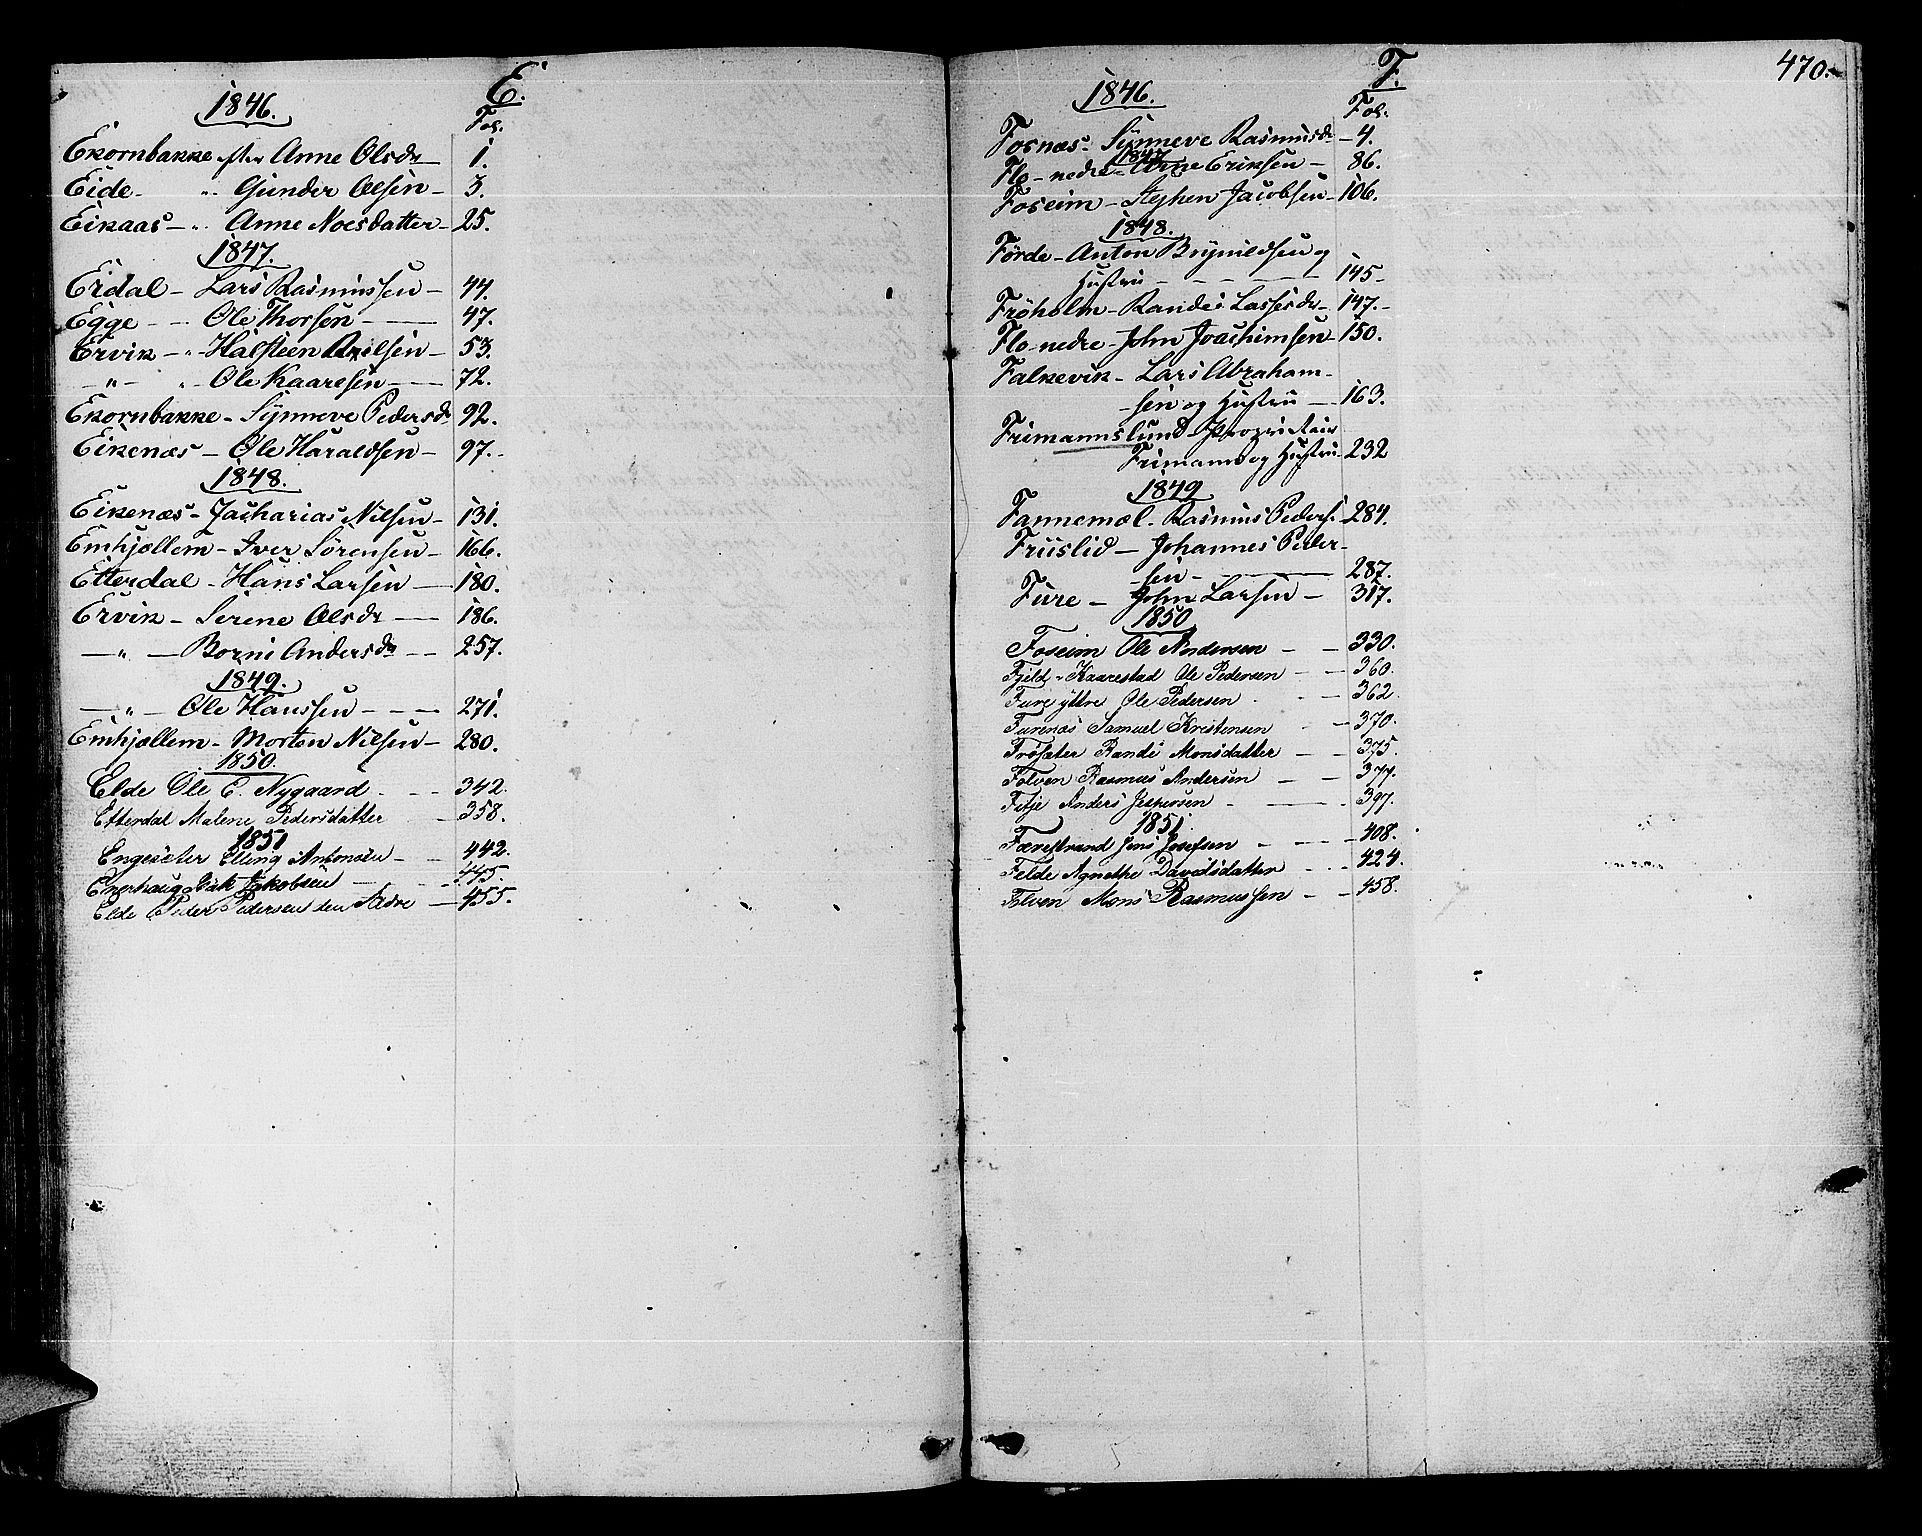 E.
1846.
Fol.
Ekornbakke efter Anne Olsdr — 1.
Eide — „ Gunder Olsen — 3.
Eikaas — „ Anne Moesdatter — 25.
1847.
Eidal — Lars Rasmussen — 44.
Egge — Ole Thorsen — 47.
Ervik — „ Halsteen Nilsen — 53.
— „ — „ Ole Kaaresen — 72.
Ekornbakke — Synneve Pedersdr 92.
Eikenæs — Ole Haraldsen — 97.
1848.
Eikenæs — Zacharias Nilsen — 131.
Emhjellem — Iver Sörensen — 166.
Etterdal — Hans Larsen — 180.
Ervik — Serene Olsdr — 186.
— „ — Borni Andersdr — 257.
1849.
— „ — Ole Hanssen — 271.
Emhjellem — Morten Nilsen — 280.
1850.
Elde Ole E. Nygaard — 342.
Etterdal Malene Pedersdatter — 358.
1851
Engesæter Elling Antonsen — 442.
Enerhaug Isak Jakobsen — 445.
Elde Peder Pedersen den Ældre — 455.
470.
F.
1846.
Fol.
Fosnæs — Synneve Rasmusdr — 4.
1847
Flo — nedre — Arne Eriksen — 86.
Foseim — Stephen Jacobsen — 106.
1848.
Förde — Anton Brynildsen og
Hustru — 145
Fröholm — Randei Lassesdr — 147.
Flo — nedre — John Joachimsen — 150.
Falkevik — Lars Abraham-
sen og Hustru — 163.
Frimannslund — Proprietair
Frimann og Hustru 232
1849
Fannemæl — Rasmus Peders. — 284.
Friislid — Johannes Peder-
sen — 287.
Fure — John Larsen — 317.
1850
Foseim Ole Andersen — 330.
Fjeld — Kaarestad Ole Pedersen — 360.
Fure yttre Ole Pedersen — 362.
Furenæs Samuel Kristensen — 370.
Frösæter Randi Monsdatter — 375.
Folven Rasmus Andersen — 377.
Fitje Anders Jespersen — 397.
1851.
Færestrand Jens Josefsen — 408.
Felde Agnethe Davidsdatter — 424.
Folven Mons Rasmussen — 458.